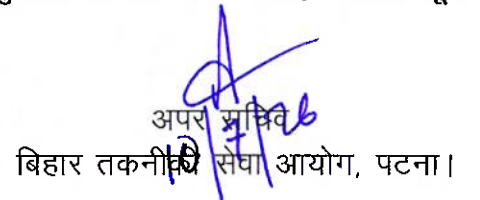 अपर सचिव
10/7/26
बिहार तकनीकी सेवा आयोग, पटना।